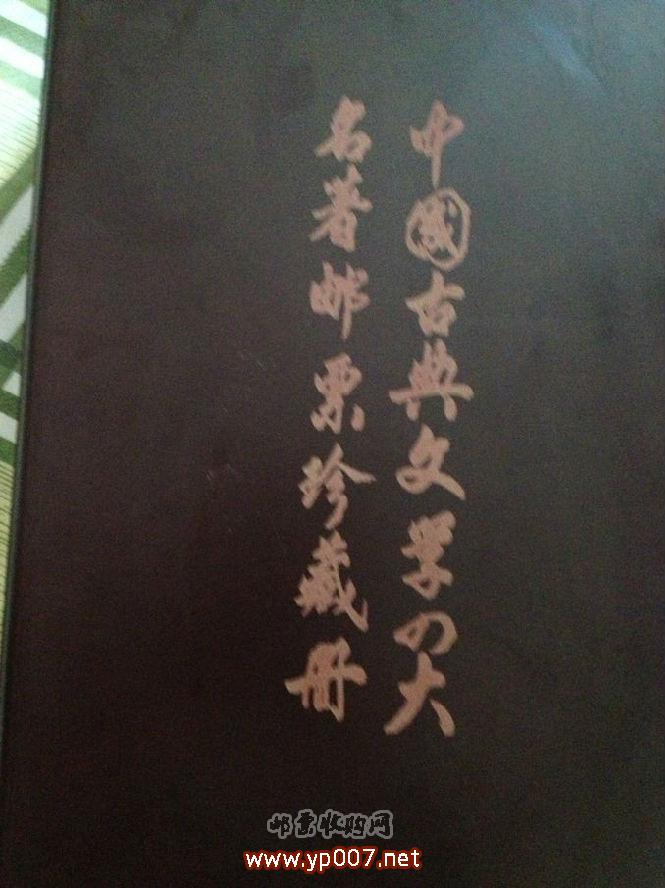 中國古典文学四大
名著邮票珍藏册
邮票收购网
www.yp007.net